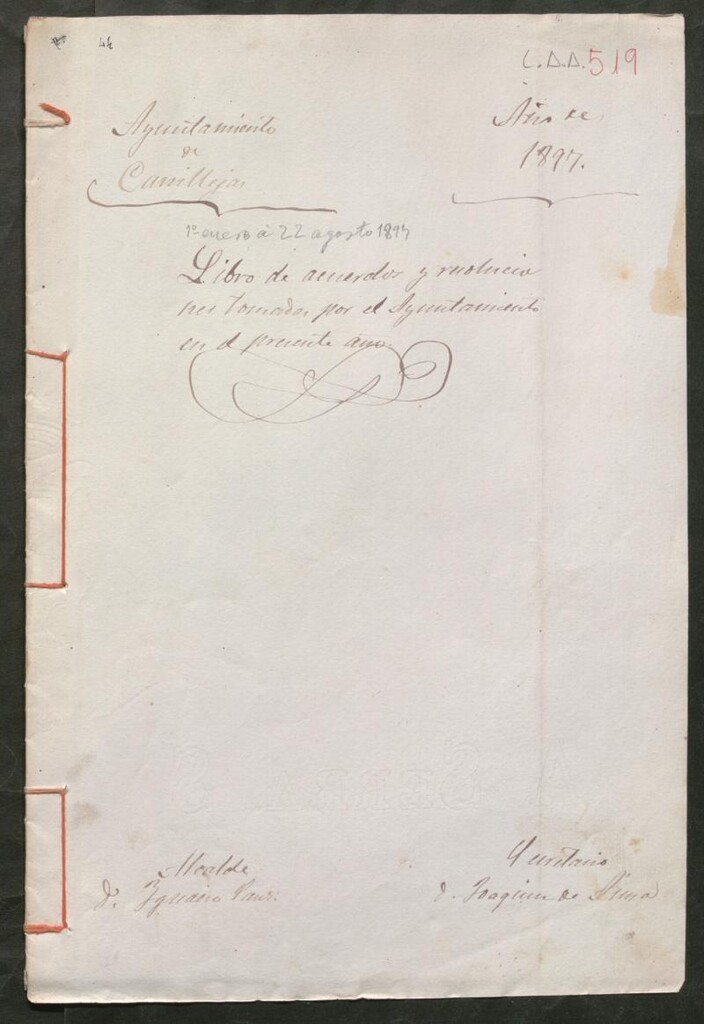 44
C.A.A. 519
Ayuntamiento
de
Canillejas
Año de
1897.
1º enero á 22 agosto 1897
Libro de acuerdos y resolucio
nes tomadas por el Ayuntamiento
en el presente año.
Alcalde
D. Ygnacio
Secretario
D. Joaquin de